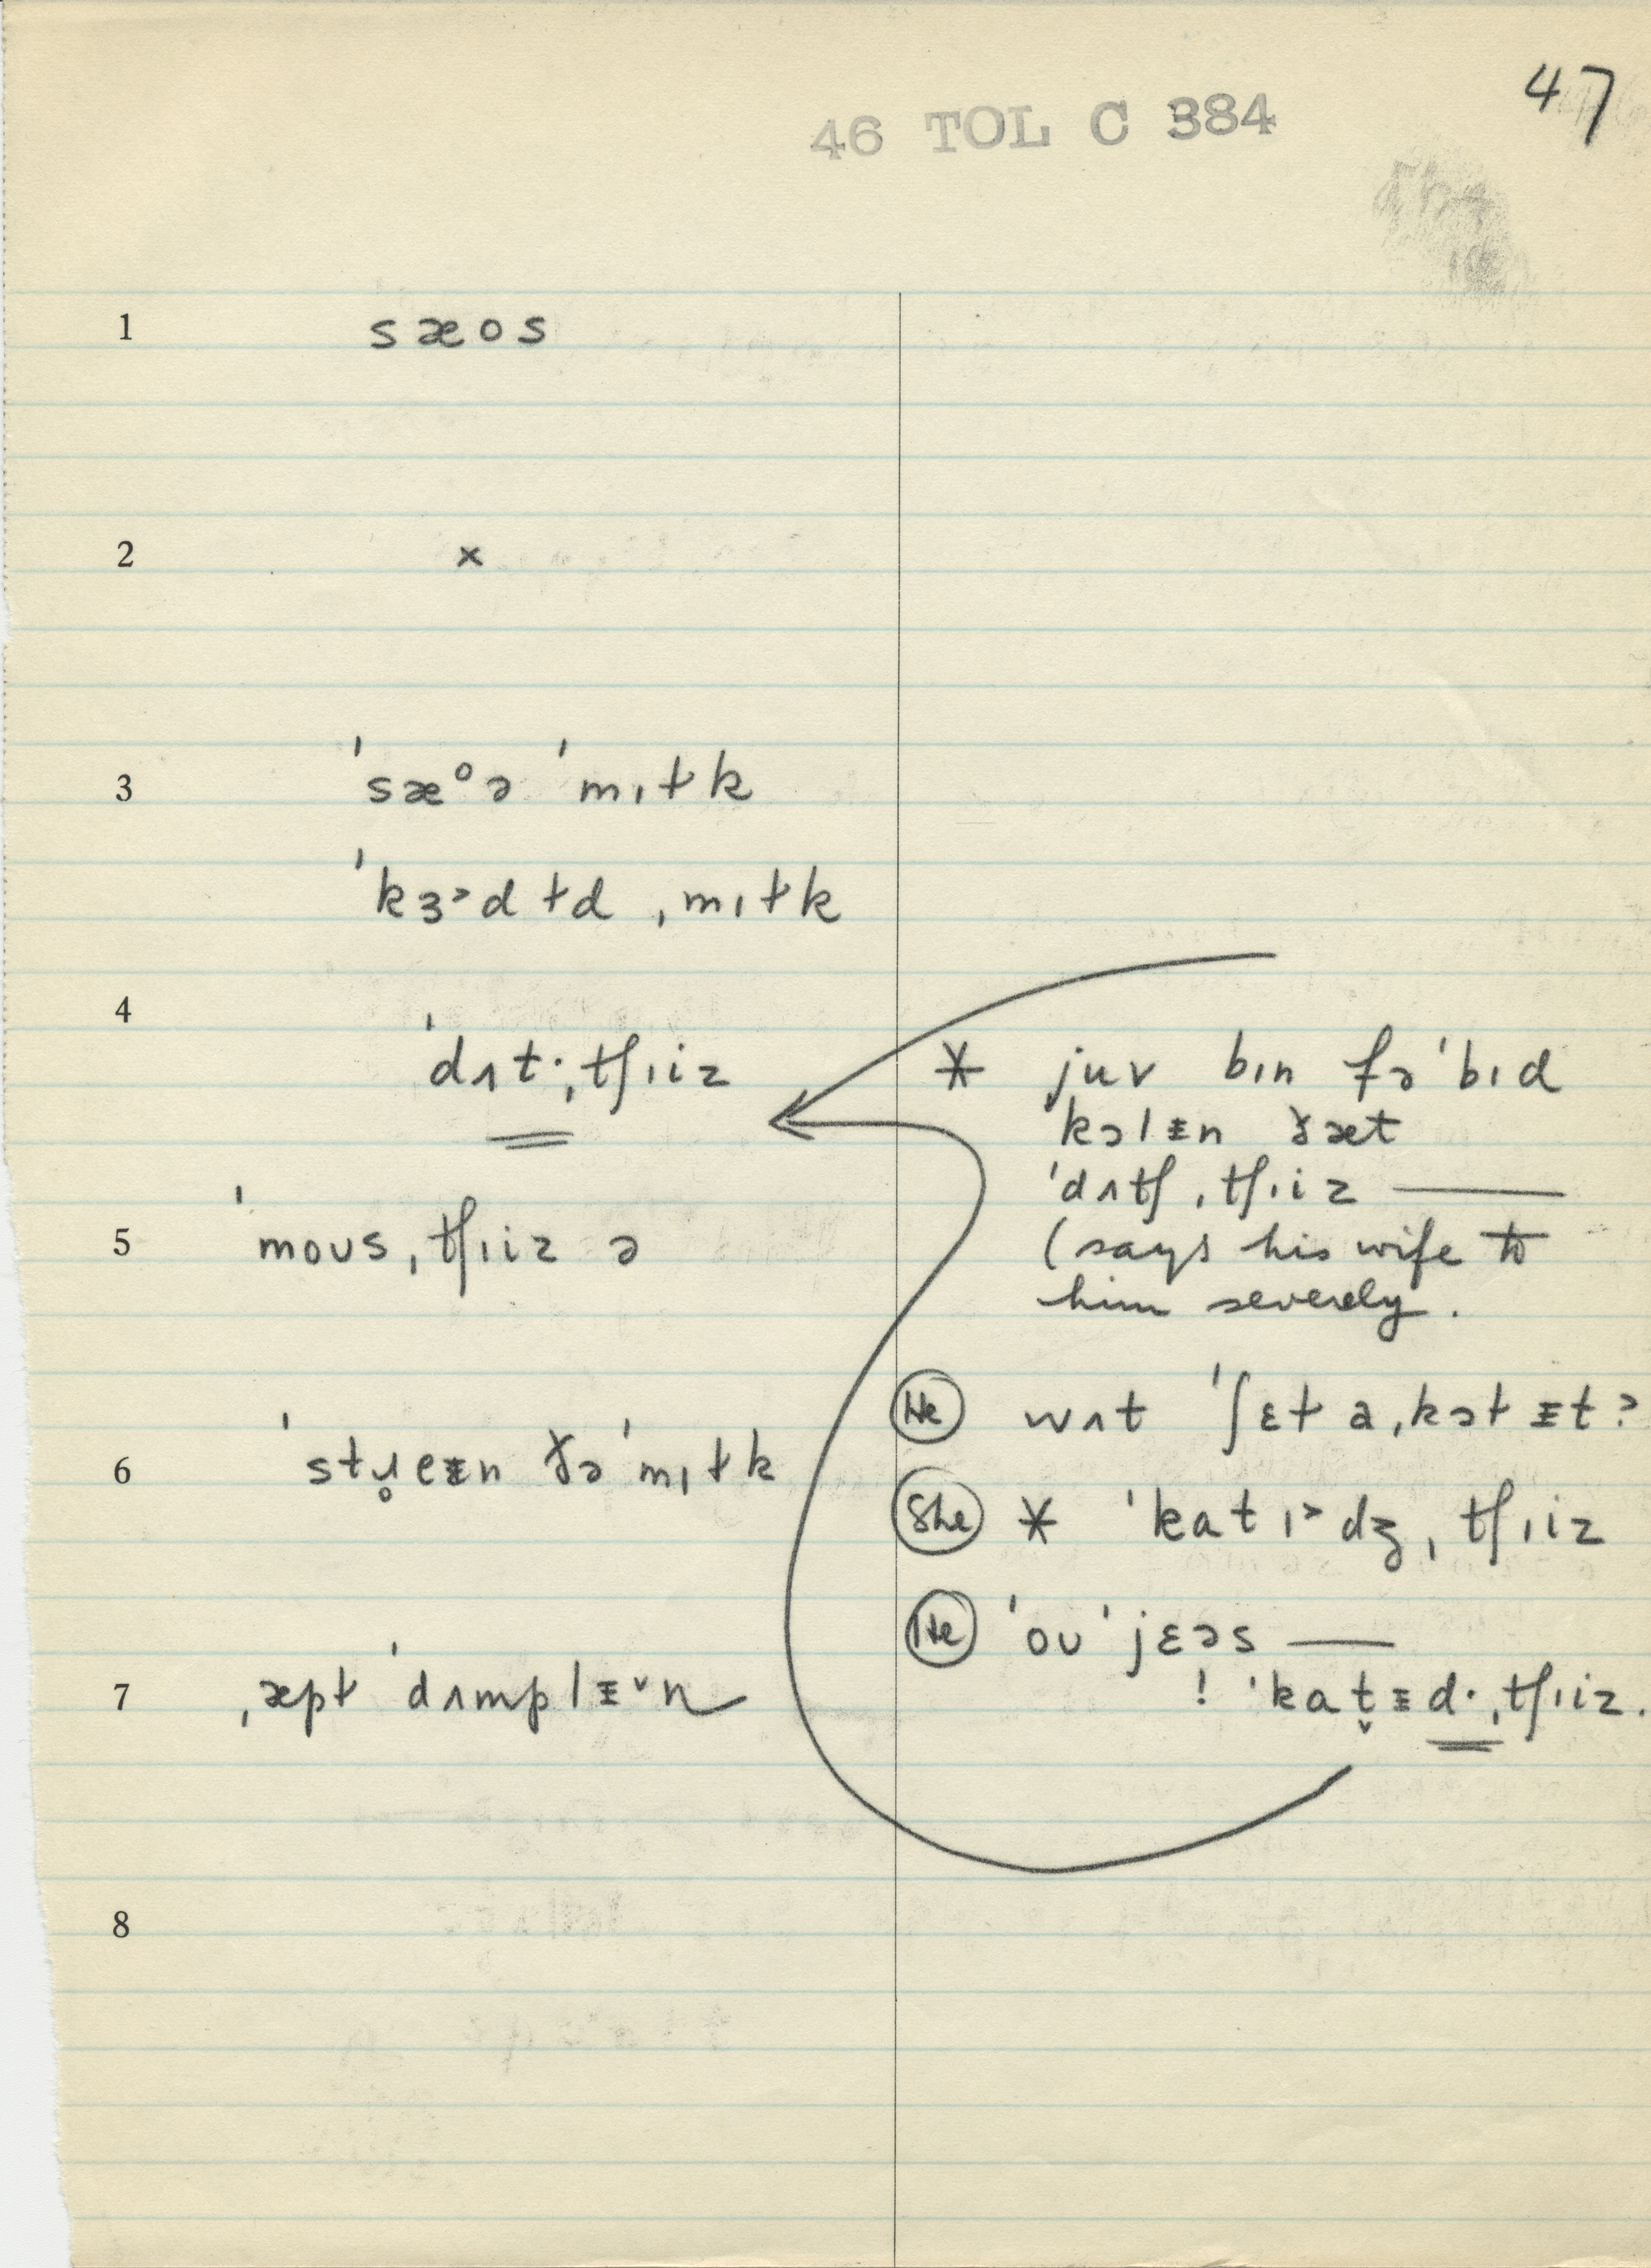 47
46 TOL C 384
1 sæos
2 ×
3 ˈsæᵒə ˈmɪɫk
ˈkɜ˞dɫd ˌmɪɫk
4 ˈdʌt·ˌtʃɪiz
5 ˈmoʊs ˌtʃɪiz ə
6 ˈstɹ̥eɪ̵n ðə ˈmɪɫk
7 ˌæpɫ ˈdʌmplɪ̵ˇn
8
* juv bɪn fəˈbɪd
ˈkɔlɪ̵n ðæt
ˈdʌtʃ ˌtʃɪiz —
(says his wife to
him severely.
He wʌt ˈʃɛɫ aˌkɔɫ ɪ̵t?
She * ˈkatɪ˞dʒ ˌtʃɪiz
He ˈoʊ ˈjɛəs —
! ˈkat̬ɪ̵d· ˌtʃɪiz.